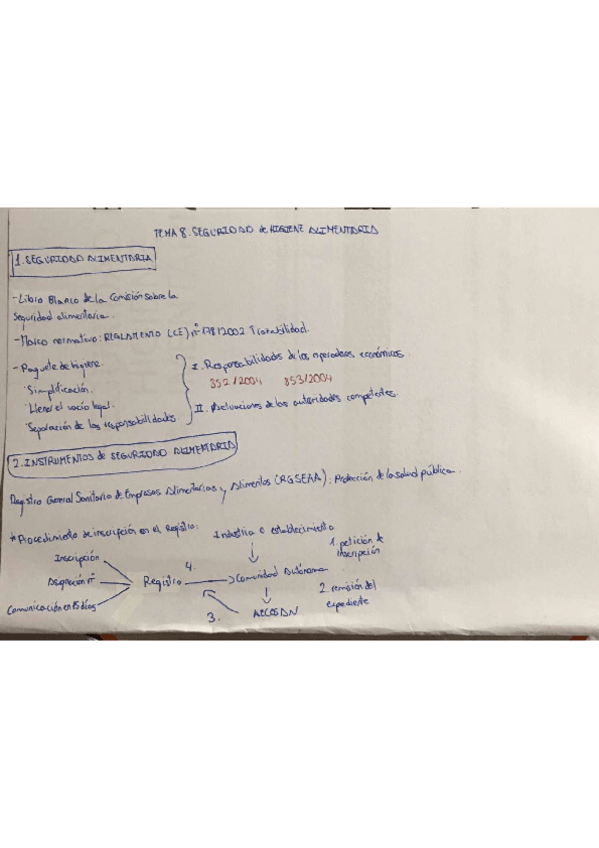 TEMA 8. SEGURIDAD de HIGIENE ALIMENTARIA
1. SEGURIDAD ALIMENTARIA
- Libro Blanco de la Comisión sobre la
seguridad alimentaria.
- Marco normativo: REGLAMENTO (CE) nº 178/2002 Trazabilidad.
- Paquete de higiene.
· Simplificación.
· Llenar el vacío legal.
· Separación de las responsabilidades.
I. Responsabilidades de los operadores económicos.
352/2004 853/2004
II. Actuaciones de las autoridades competentes.
2. INSTRUMENTOS de SEGURIDAD ALIMENTARIA
Registro General Sanitario de Empresas Alimentarias y Alimentos (RGSEAA): Protección de la salud pública.
* Procedimiento de inscripción en el Registro:
Industria o establecimiento
1. petición de
inscripción
Inscripción
Asignación nº
Comunicación en 15 días
Registro
4.
Comunidad Autónoma
2. remisión del
expediente
3.
AECOSAN